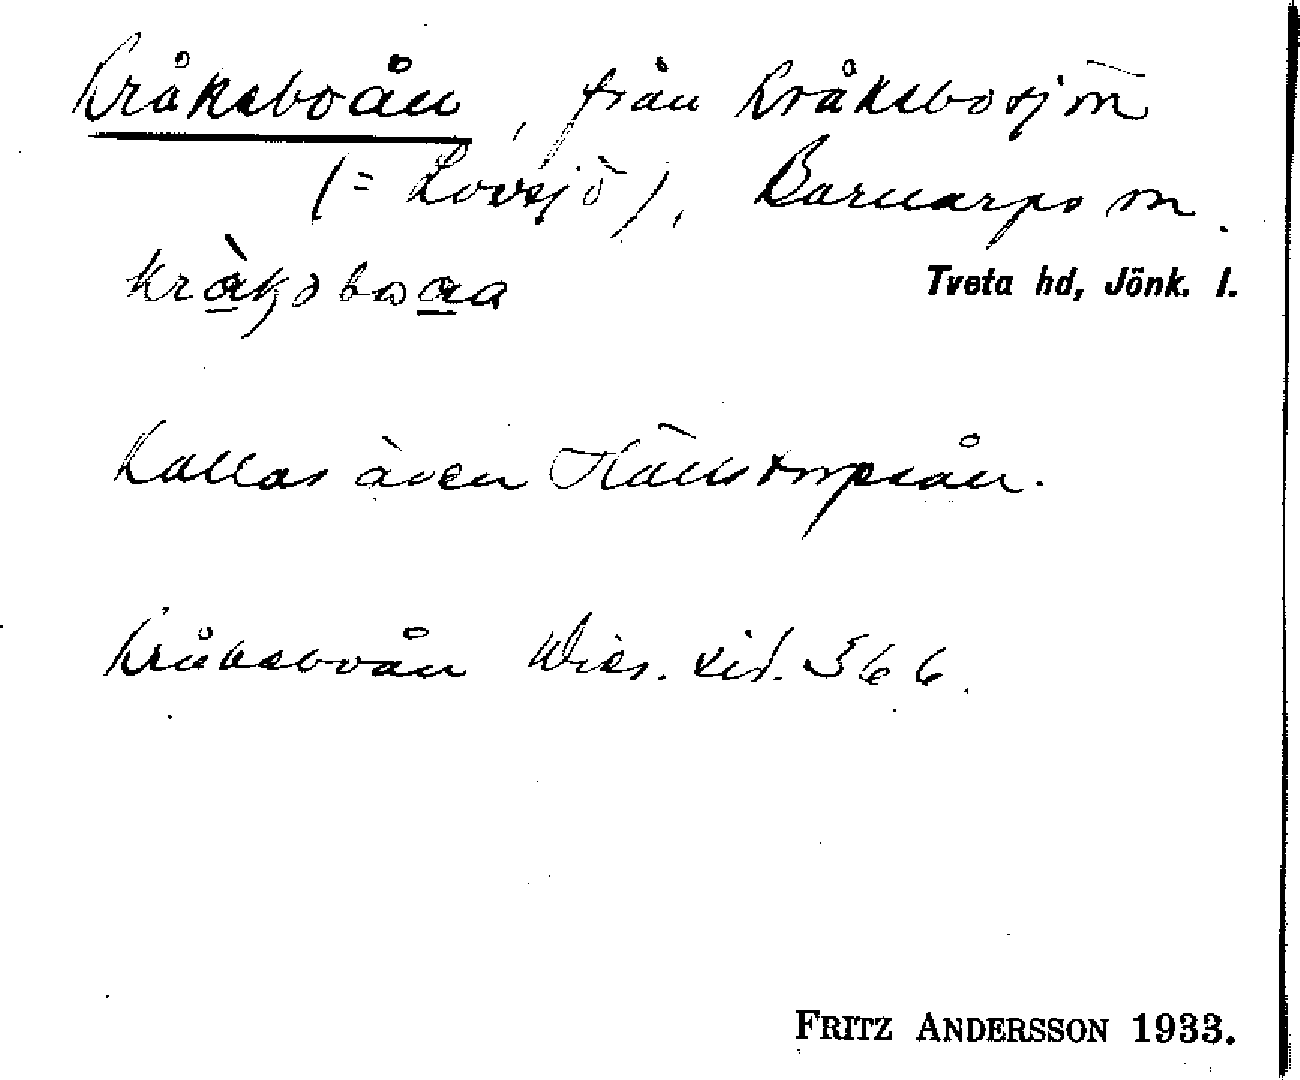 Kråksboån, från Kråksbosjön
(= Lovsjö), Barnarps sn.
Tveta hd, Jönk. l.
Kallas även Hällstorpsån.
Kråksboån Wies. sid. 566.
FRITZ ANDERSSON 1933.